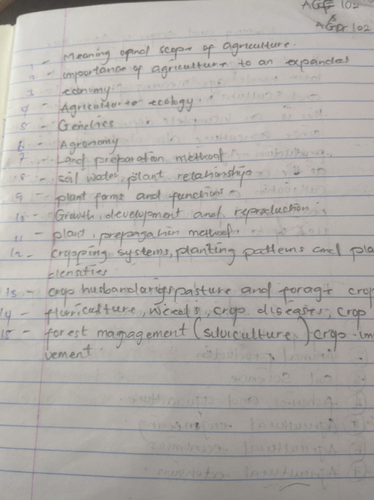 AGE 102
AGR 102
1 - Meaning and scope of agriculture.
2 - importance of agriculture to an expanded
3 economy
4 - Agriculture ecology
5 - Genetics
6 - Agronomy
7 - Land preparation method
8 - soil water, plant relationship
9 - plant forms and function
10 - Growth, development and reproduction
11 - plant, propagation method
12 - cropping systems, planting patterns and pla
densities
13 - crop husbandary, pasture and forage crop
14 - fluriculture, weeds, crop diseases, crop
15 - forest management (silviculture) crop im
vement